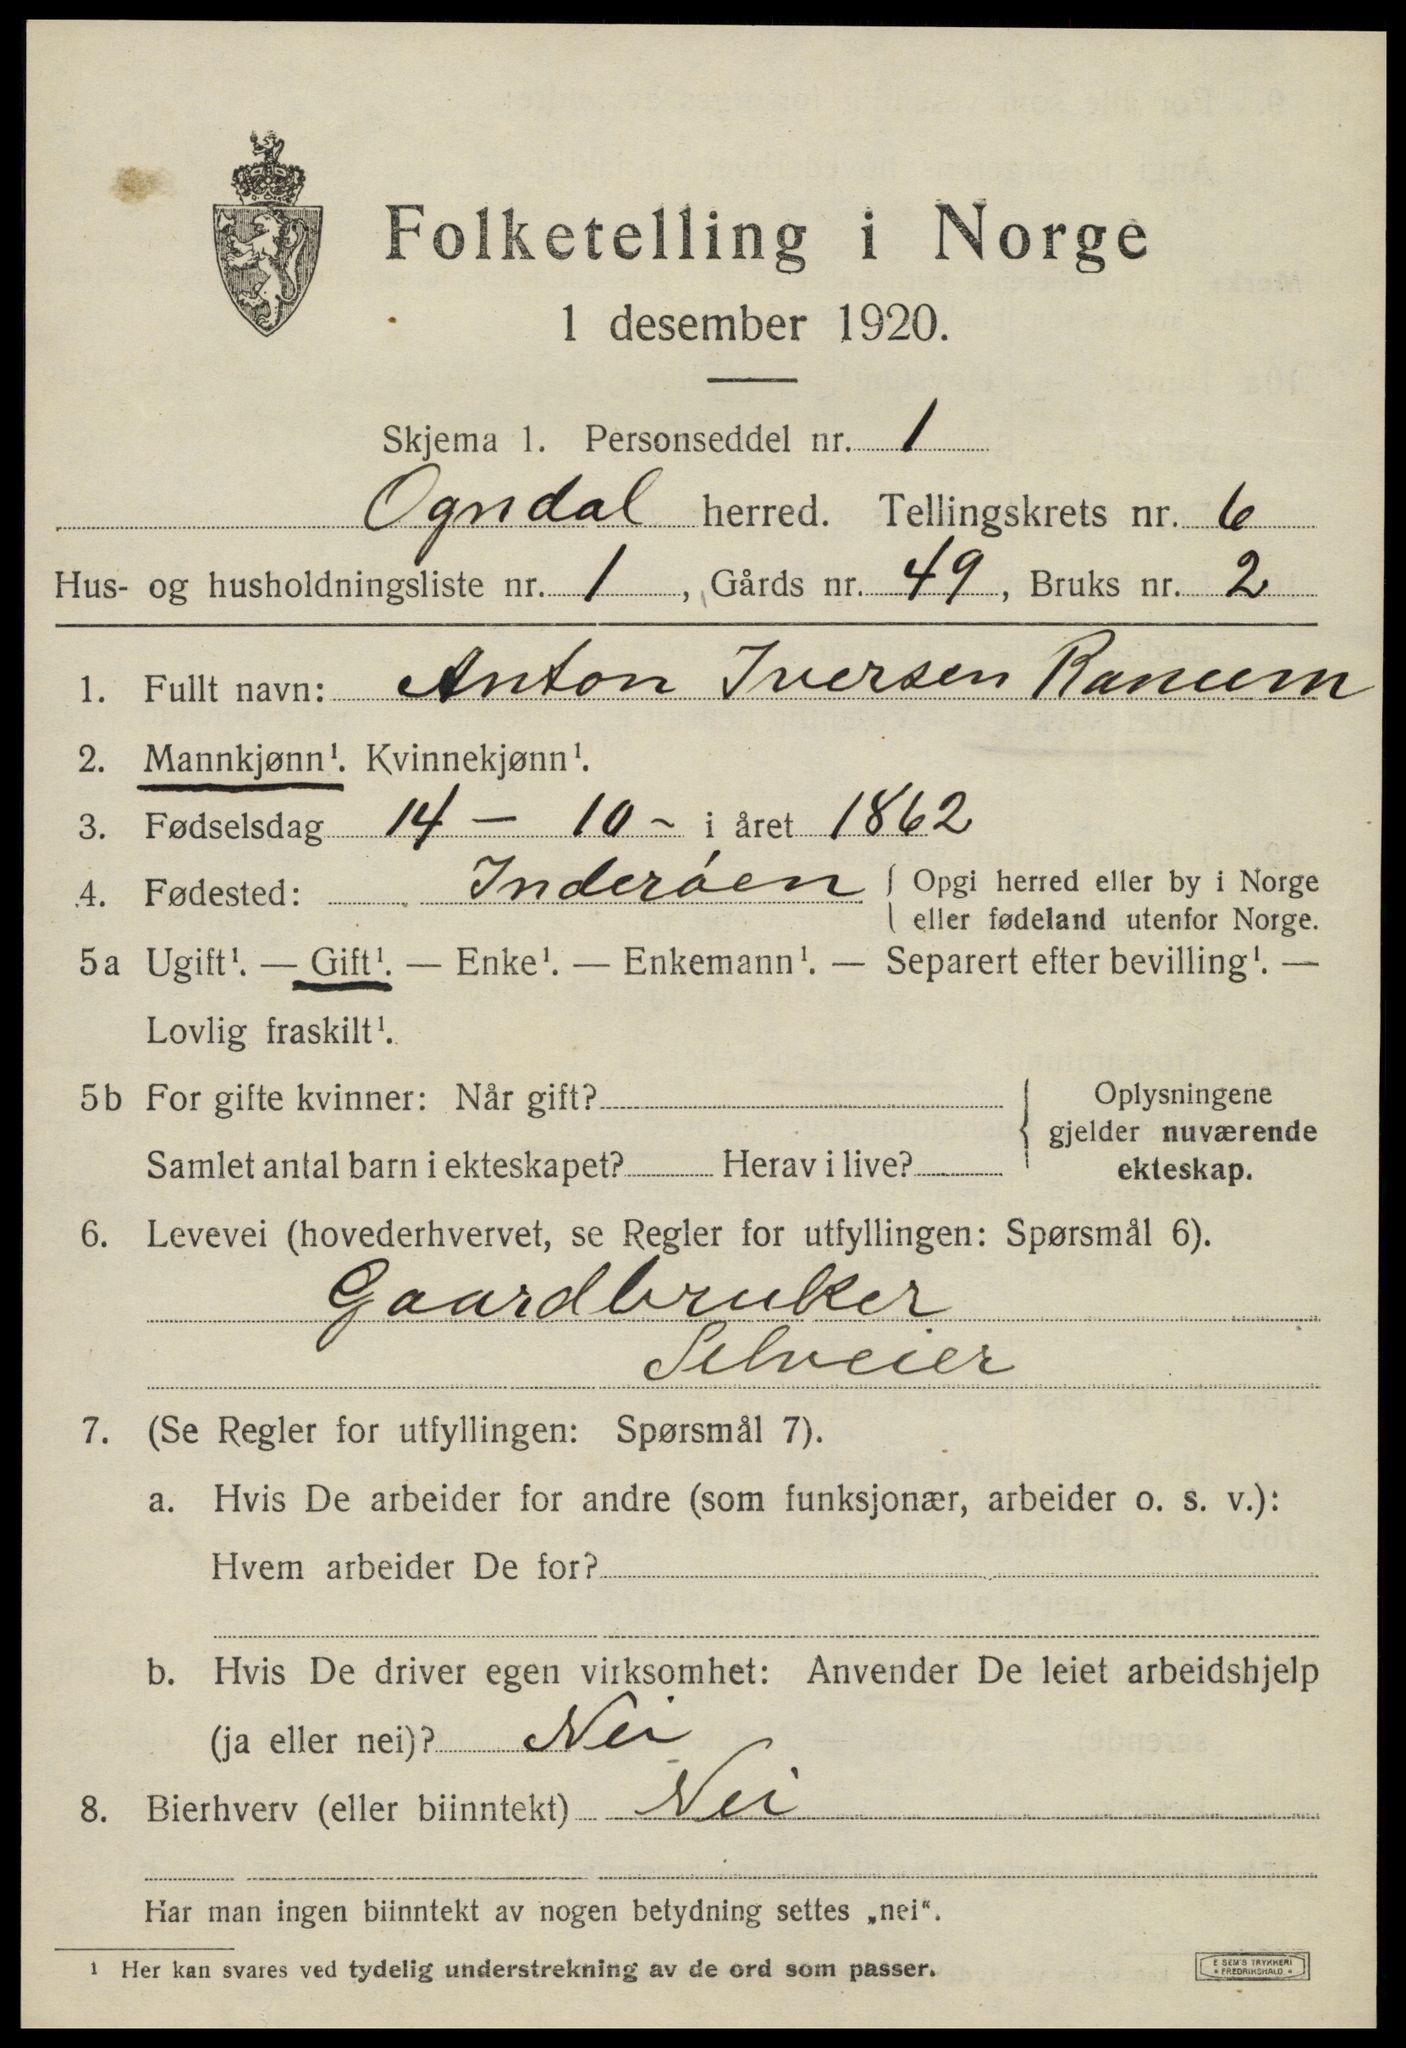 Folketelling i Norge
1 desember 1920.
Skjema 1. Personseddel nr. 1
Ogndal herred. Tellingskrets nr. 6
Hus- og husholdningsliste nr. 1, Gårds nr. 49, Bruks nr. 2
1. Fullt navn: Anton Iversen Ranum
2. Mannkjønn¹. Kvinnekjønn¹.
3. Fødselsdag 14 - 10 - i året 1862
4. Fødested: Inderøen { Opgi herred eller by i Norge
eller fødeland utenfor Norge.
5a Ugift¹. — Gift¹. — Enke¹. — Enkemann¹. — Separert efter bevilling¹. —
Lovlig fraskilt¹.
5b For gifte kvinner: Når gift?
Samlet antal barn i ekteskapet? Herav i live?
Oplysningene
gjelder nuværende
ekteskap.
6. Levevei (hovederhvervet, se Regler for utfyllingen: Spørsmål 6).
Gaardbruker
Selveier
7. (Se Regler for utfyllingen: Spørsmål 7).
a. Hvis De arbeider for andre (som funksjonær, arbeider o. s. v.):
Hvem arbeider De for?
b. Hvis De driver egen virksomhet: Anvender De leiet arbeidshjelp
(ja eller nei)? Nei
8. Bierhverv (eller biinntekt) Nei
Har man ingen biinntekt av nogen betydning settes „nei“.
¹ Her kan svares ved tydelig understrekning av de ord som passer.
E SEM'S TRYKKERI
FREDRIKSHALD